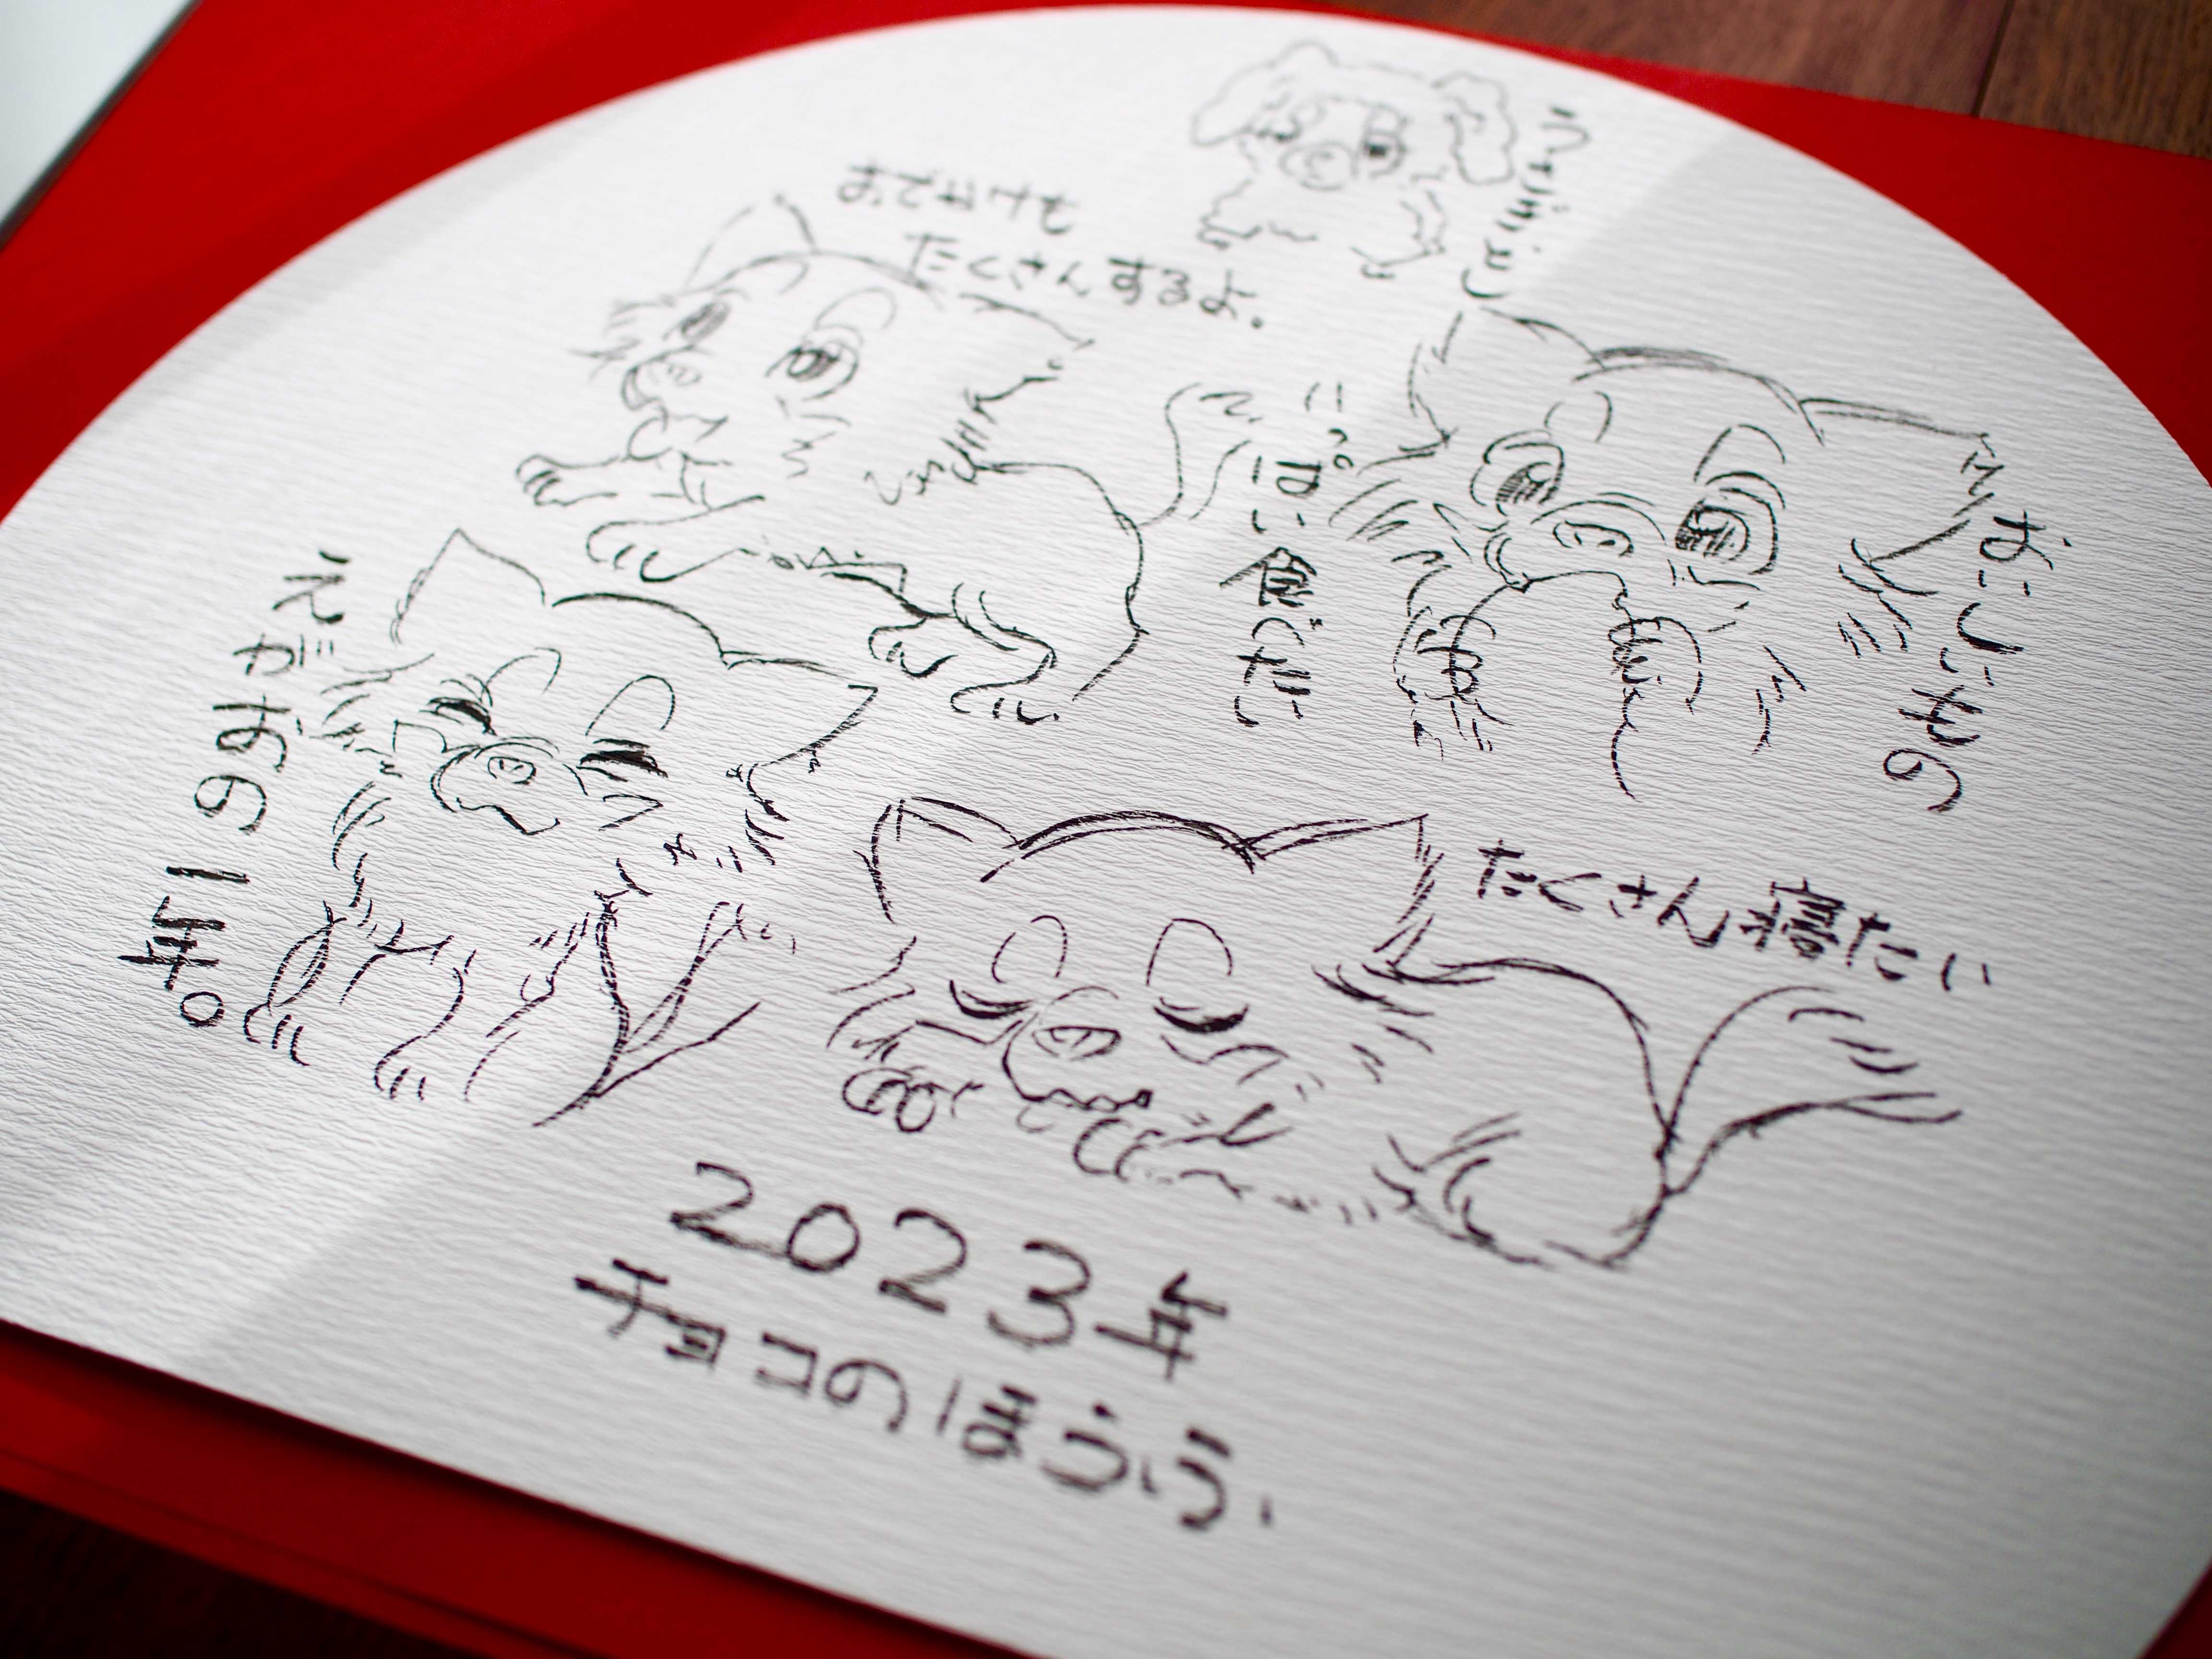 うさぎどし
おでかけも
たくさんするよ。
おいしいもの
いっぱい食べたい
えがおの1年。
たくさん寝たい
2023年
チョコのほうふ